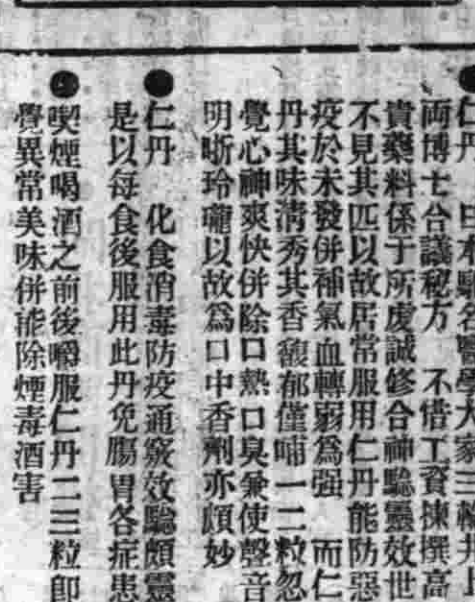 ●仁丹 日本 醫學大家三輪井上
両博士合議秘方 不惜工資揀撰高
貴藥料係于所虔誠修合神驗靈效世
不見其匹以故居常服用仁丹能防惡
疫於未發併補氣血轉弱爲强 而仁
丹其味清秀其香馥郁僅哺一二粒忽
覺心神爽快併除口熱口臭兼使聲音
明晰玲瓏以故爲口中香劑亦頗妙
●仁丹 化食消毒防疫通竅效驗頗靈
是以每食後服用此丹免膓胃各症患
●喫煙喝酒之前後嚼服仁丹二三粒卽
覺異常美味併能除煙毒酒害